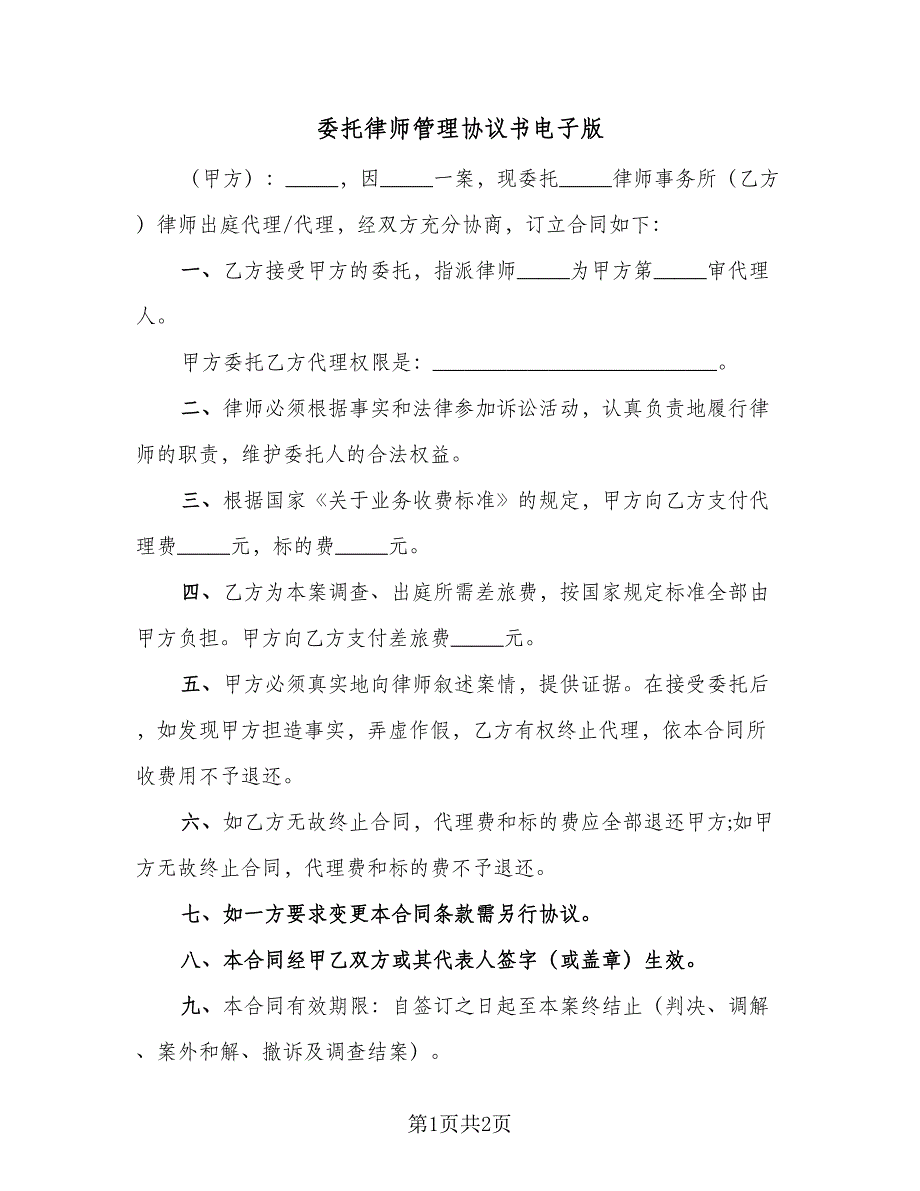 委托律师管理协议书电子版
（甲方）：_____，因_____一案，现委托_____律师事务所（乙方
）律师出庭代理/代理，经双方充分协商，订立合同如下：
一、乙方接受甲方的委托，指派律师_____为甲方第_____审代理
人。
甲方委托乙方代理权限是：___________________________。
二、律师必须根据事实和法律参加诉讼活动，认真负责地履行律
师的职责，维护委托人的合法权益。
三、根据国家《关于业务收费标准》的规定，甲方向乙方支付代
理费_____元，标的费_____元。
四、乙方为本案调查、出庭所需差旅费，按国家规定标准全部由
甲方负担。甲方向乙方支付差旅费_____元。
五、甲方必须真实地向律师叙述案情，提供证据。在接受委托后
，如发现甲方担造事实，弄虚作假，乙方有权终止代理，依本合同所
收费用不予退还。
六、如乙方无故终止合同，代理费和标的费应全部退还甲方;如甲
方无故终止合同，代理费和标的费不予退还。
七、如一方要求变更本合同条款需另行协议。
八、本合同经甲乙双方或其代表人签字（或盖章）生效。
九、本合同有效期限：自签订之日起至本案终结止（判决、调解
、案外和解、撤诉及调查结案）。
第1页共2页